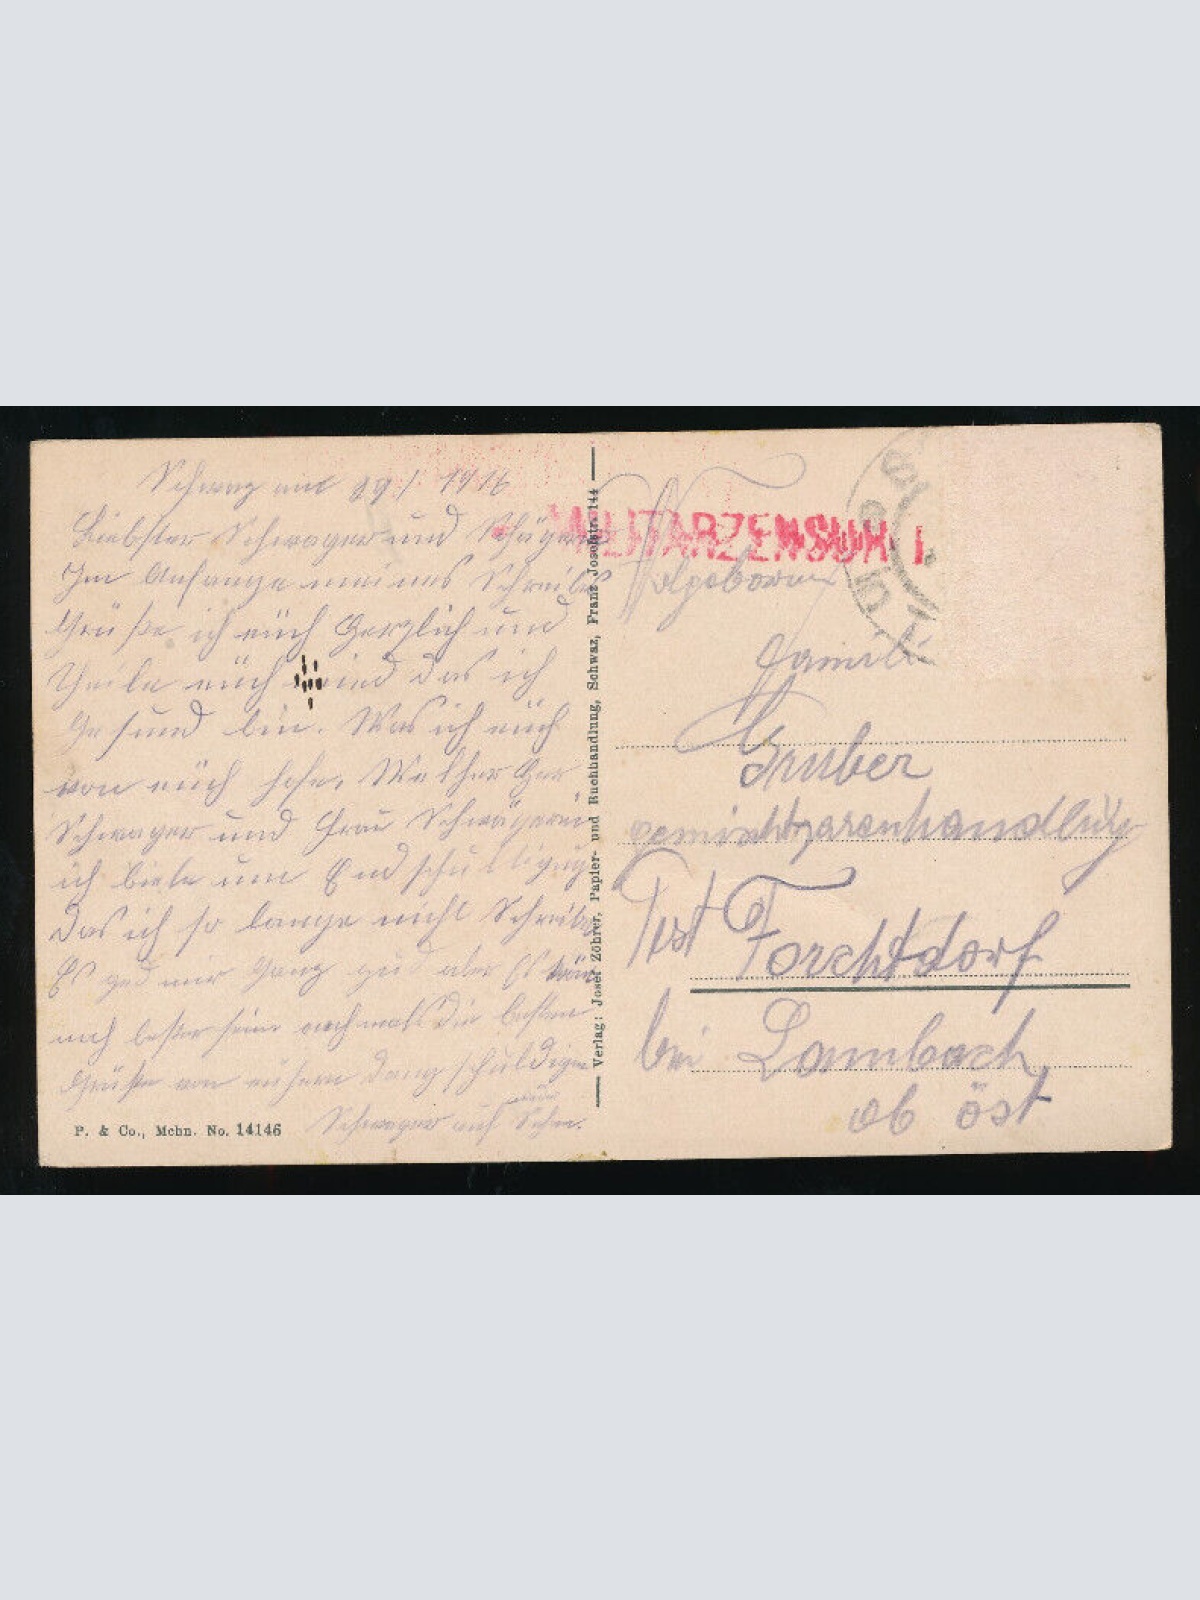 Schwaz am 29/1 1916
Liebster Schwager und Schägerin
Im Anfange meines Schreibes
Grüße ich eüch Herzlich und
Theile eüch mied das ich
Gesund bin. Was ich eüch
von eüch hofe. Welther Her
Schwager und Frau Schwägerin
ich biete um Endschultigug
Das ich so lange nicht Schreibe
Es ged mir Ganz gud aber Es
noch besser sein nochmals die besten
Grüße von eurem Dangschuldigen
Schwager auf Wieder Sehn.
P. & Co., Mchn. No. 14146
Verlag: Josef Zöhrer, Papier- und Buchhandlung, Schwaz, Franz Josefstr. 144
MILITÄRZENSUR I
Wolgeboren
Famili
Gruber
gemischtwarenhandlüng
Post Forchtdorf
bei Lambach
ob öst